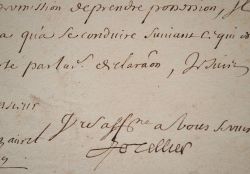 permission de prendre possession, Il
a qu'a se conduire suivant ce qui d
te par la d. declaraõn, Je suis
onsieur
Vre aff.ne a vous servir
Letellier